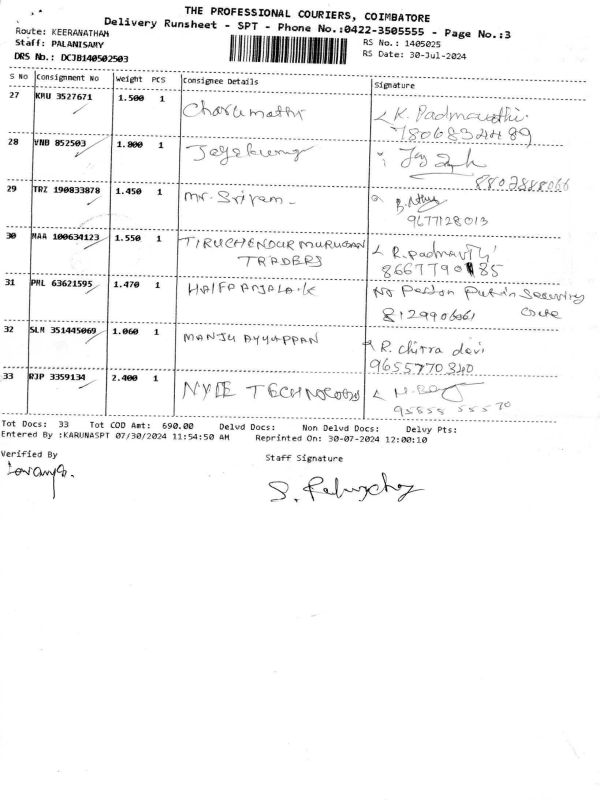 THE PROFESSIONAL COURIERS, COIMBATORE
Delivery Runsheet - SPT - Phone No.:0422-3505555 - Page No.:3
Route: KEERANATHAM
Staff: PALANISAMY
DRS No.: DCJB140502503
RS No.: 1405025
RS Date: 30-Jul-2024
S No Consignment No Weight PCS Consignee Details Signature
27 KMU 3527671 1.500 1 Charumathi K. Padmavathi
7806834489
28 VNB 852503 1.800 1 Jayakumar
8807888066
29 TRZ 190833878 1.450 1 mr. Sriram
9677128013
30 MAA 100634123 1.550 1 TIRUCHENDUR MURUGAN R. Padmavathi
TRADERS
31 PML 63621595 1.470 1 No Person Put in Security
8129906061 
32 SLM 351445069 1.060 1 MANJU AYYAPPAN R. Chitra devi
9655770340
33 RJP 3359134 2.400 1
95855 55570
Tot Docs: 33 Tot COD Amt: 690.00 Delvd Docs: Non Delvd Docs: Delvy Pts:
Entered By :KARUNASPT 07/30/2024 11:54:50 AM Reprinted On: 30-07-2024 12:00:10
Verified By Staff Signature